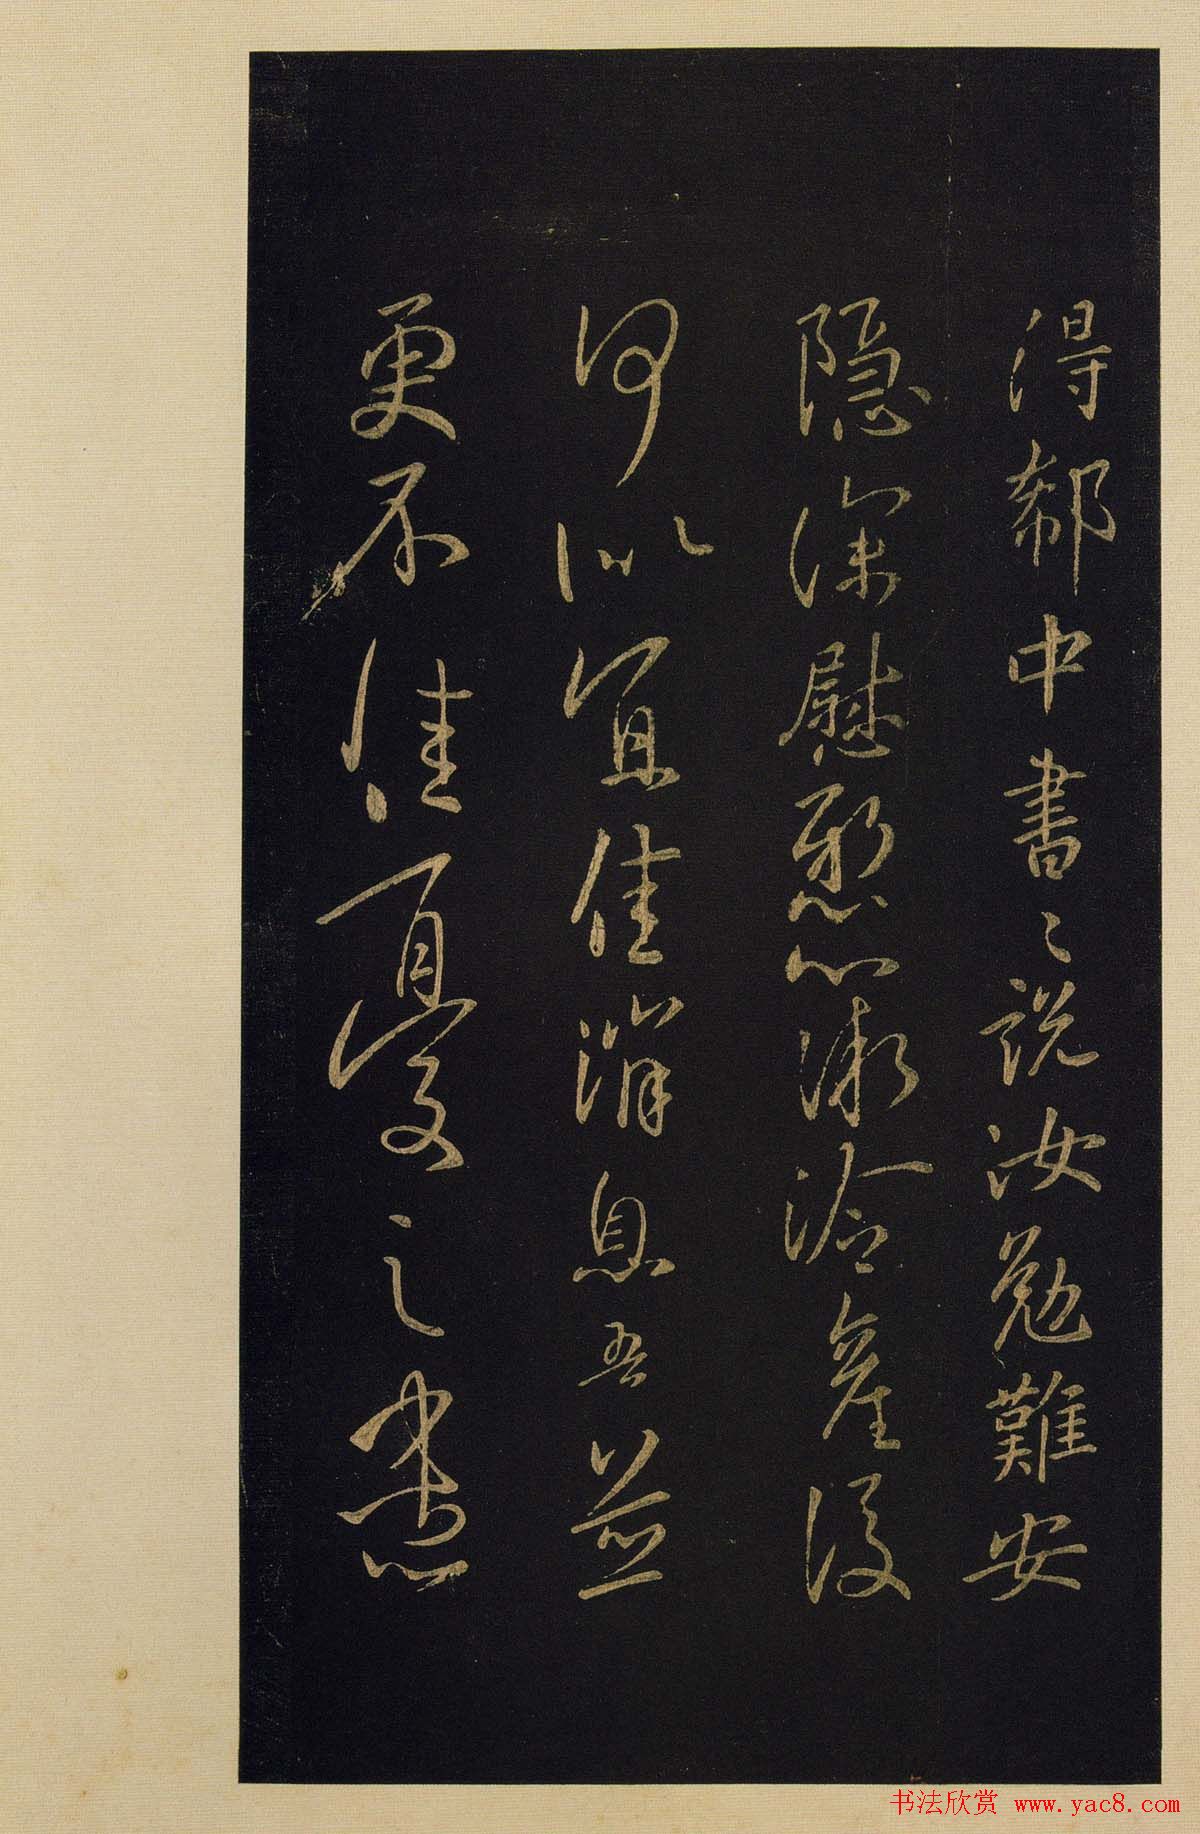 得郗中書〻説汝勉難安
隱深慰懸心漸冷産後
何以宜佳消息吾並
更不佳憂之
书法欣赏 www.yac8.com